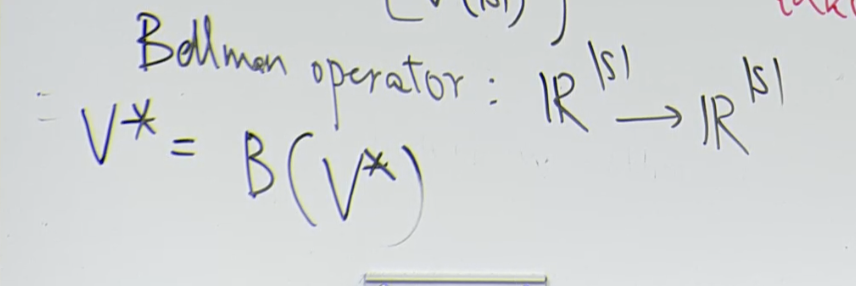 Bellman operator : ℝ^|S| → ℝ^|S|
V* = B(V*)